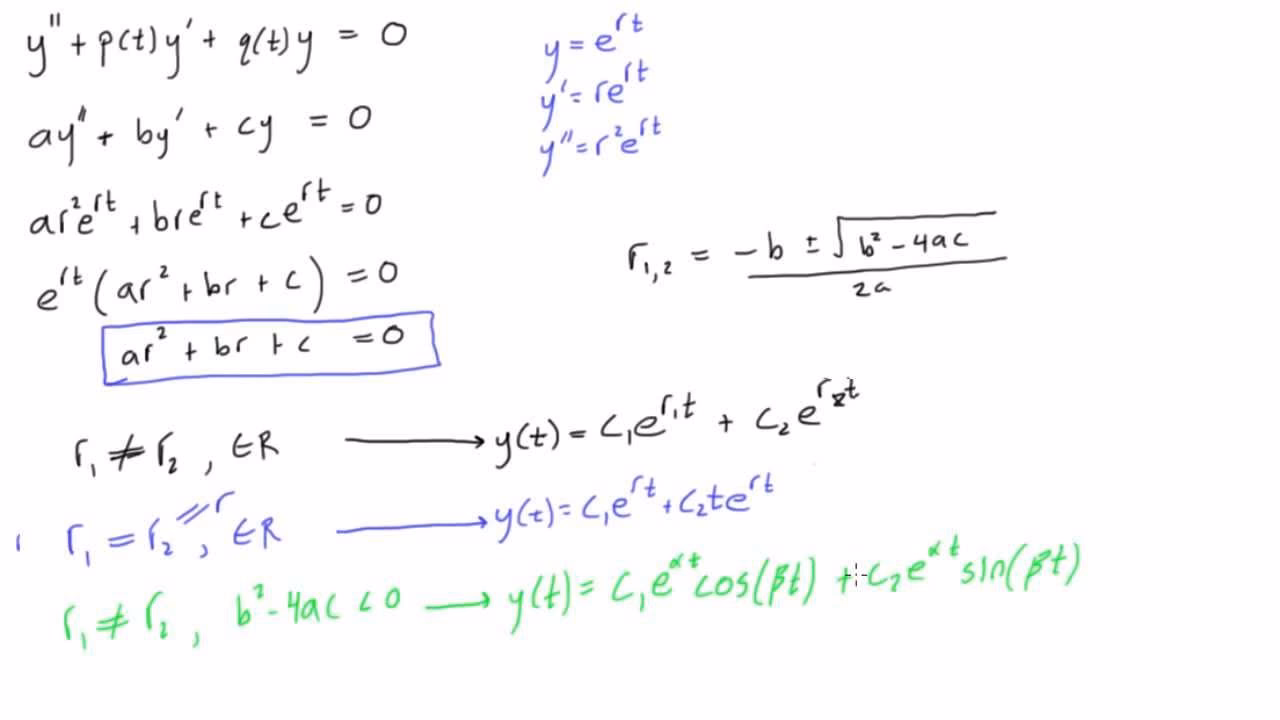 y'' + p(t)y' + q(t)y = 0
y = e^{rt}
y' = re^{rt}
y'' = r²e^{rt}
ay'' + by' + cy = 0
ar²e^{rt} + bre^{rt} + ce^{rt} = 0
r_{1,2} = \frac{-b ± \sqrt{b² - 4ac}}{2a}
e^{rt}(ar² + br + c) = 0
ar² + br + c = 0
r₁ ≠ r₂ , ∈ R ⟶ y(t) = c₁e^{r₁t} + c₂e^{r₂t}
r₁ = r₂ = r , ∈ R ⟶ y(t) = c₁e^{rt} + c₂te^{rt}
r₁ ≠ r₂ , b² - 4ac < 0 ⟶ y(t) = c₁e^{αt}cos(βt) + c₂e^{αt}sin(βt)